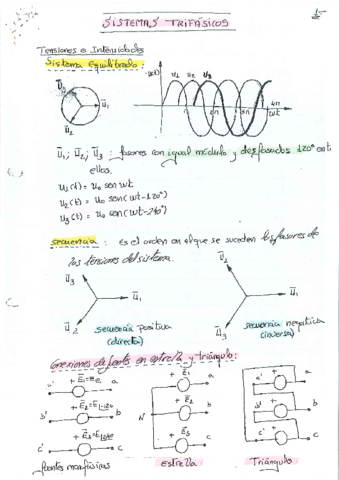 SISTEMAS TRIFÁSICOS
Tensiones e Intensidades
Sistema Equilibrado:
u(t) u₁ u₂ u₃
π 2π 3π 4π
wt
Ū₃ Ū₁
Ū₂
Ū₁; Ū₂; Ū₃ : fasores con igual módulo y desfasados 120° ent
ellos.
u₁(t) = u₀ sen wt
u₂(t) = u₀ sen(wt-120°)
u₃(t) = u₀ sen(wt-240°)
secuencia : Es el orden en el que se suceden los fasores de
las tensiones del sistema.
Ū₃ Ū₁ Ū₂
Ū₂ Ū₁ Ū₃
secuencia positiva
(directa)
secuencia negativa
(inversa)
Conexiones de fuentes en estrella y triángulo:
+ Ē₁=E a
b' + Ē₂=E b
c' c
fuentes monofásicas
+ Ē₁ a
N + Ē₂ b
+ Ē₃ c
Estrella
a' + a
b' + b
c' + c
Triángulo